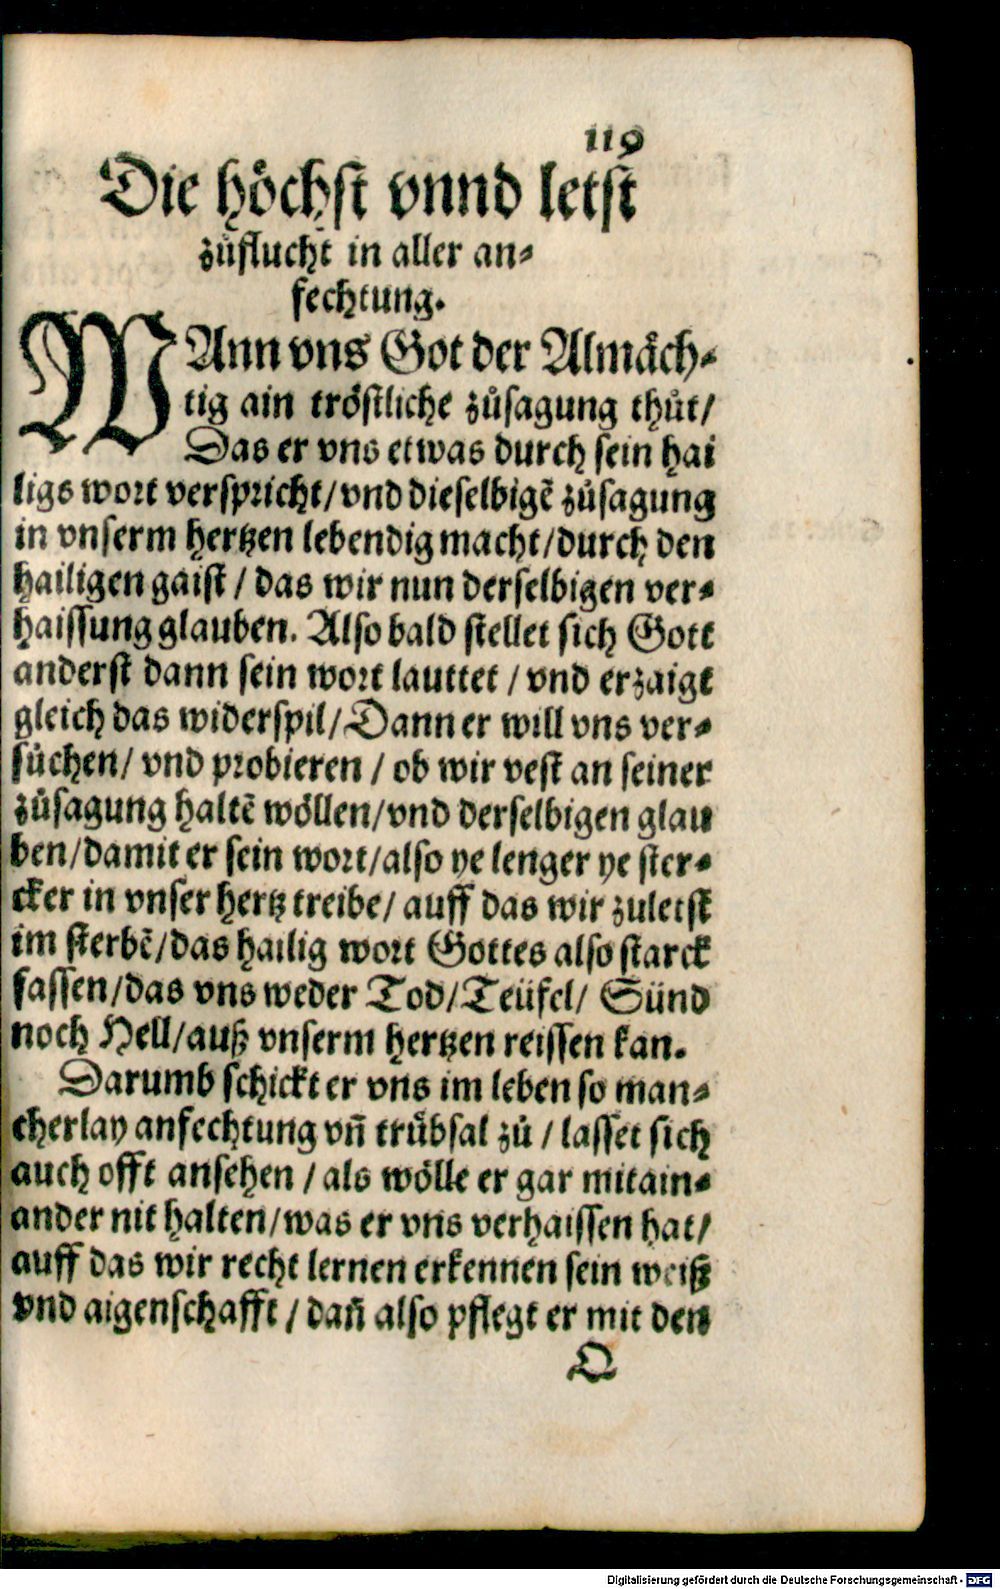 119
Die höchst vnnd letst
zůflucht in aller an⸗
fechtung.
WAnn vns Got der Almäch⸗
tig ain tröstliche zůsagung thůt/
Das er vns etwas durch sein hai
ligs wort verspricht/vnd dieselbigẽ zůsagung
in vnserm hertzen lebendig macht/durch den
hailigen gaist / das wir nun derselbigen ver⸗
haissung glauben. Also bald stellet sich Gott
anderst dann sein wort lauttet / vnd erzaigt
gleich das widerspil/Dann er will vns ver⸗
sůchen/ vnd probieren / ob wir vest an seiner
zůsagung haltẽ wöllen/vnd derselbigen glau
ben/damit er sein wort/also ye lenger ye ster⸗
cker in vnser hertz treibe/ auff das wir zuletst
im sterbẽ/das hailig wort Gottes also starck
fassen/das vns weder Tod/Teüfel/ Sünd
noch Hell/auß vnserm hertzen reissen kan.
Darumb schickt er vns im leben so man⸗
cherlay anfechtung vñ trůbsal zů / lasset sich
auch offt ansehen / als wölle er gar mitain⸗
ander nit halten/was er vns verhaissen hat/
auff das wir recht lernen erkennen sein weiß
vnd aigenschafft / dañ also pflegt er mit den
Q
Digitalisierung gefördert durch die Deutsche Forschungsgemeinschaft - DFG